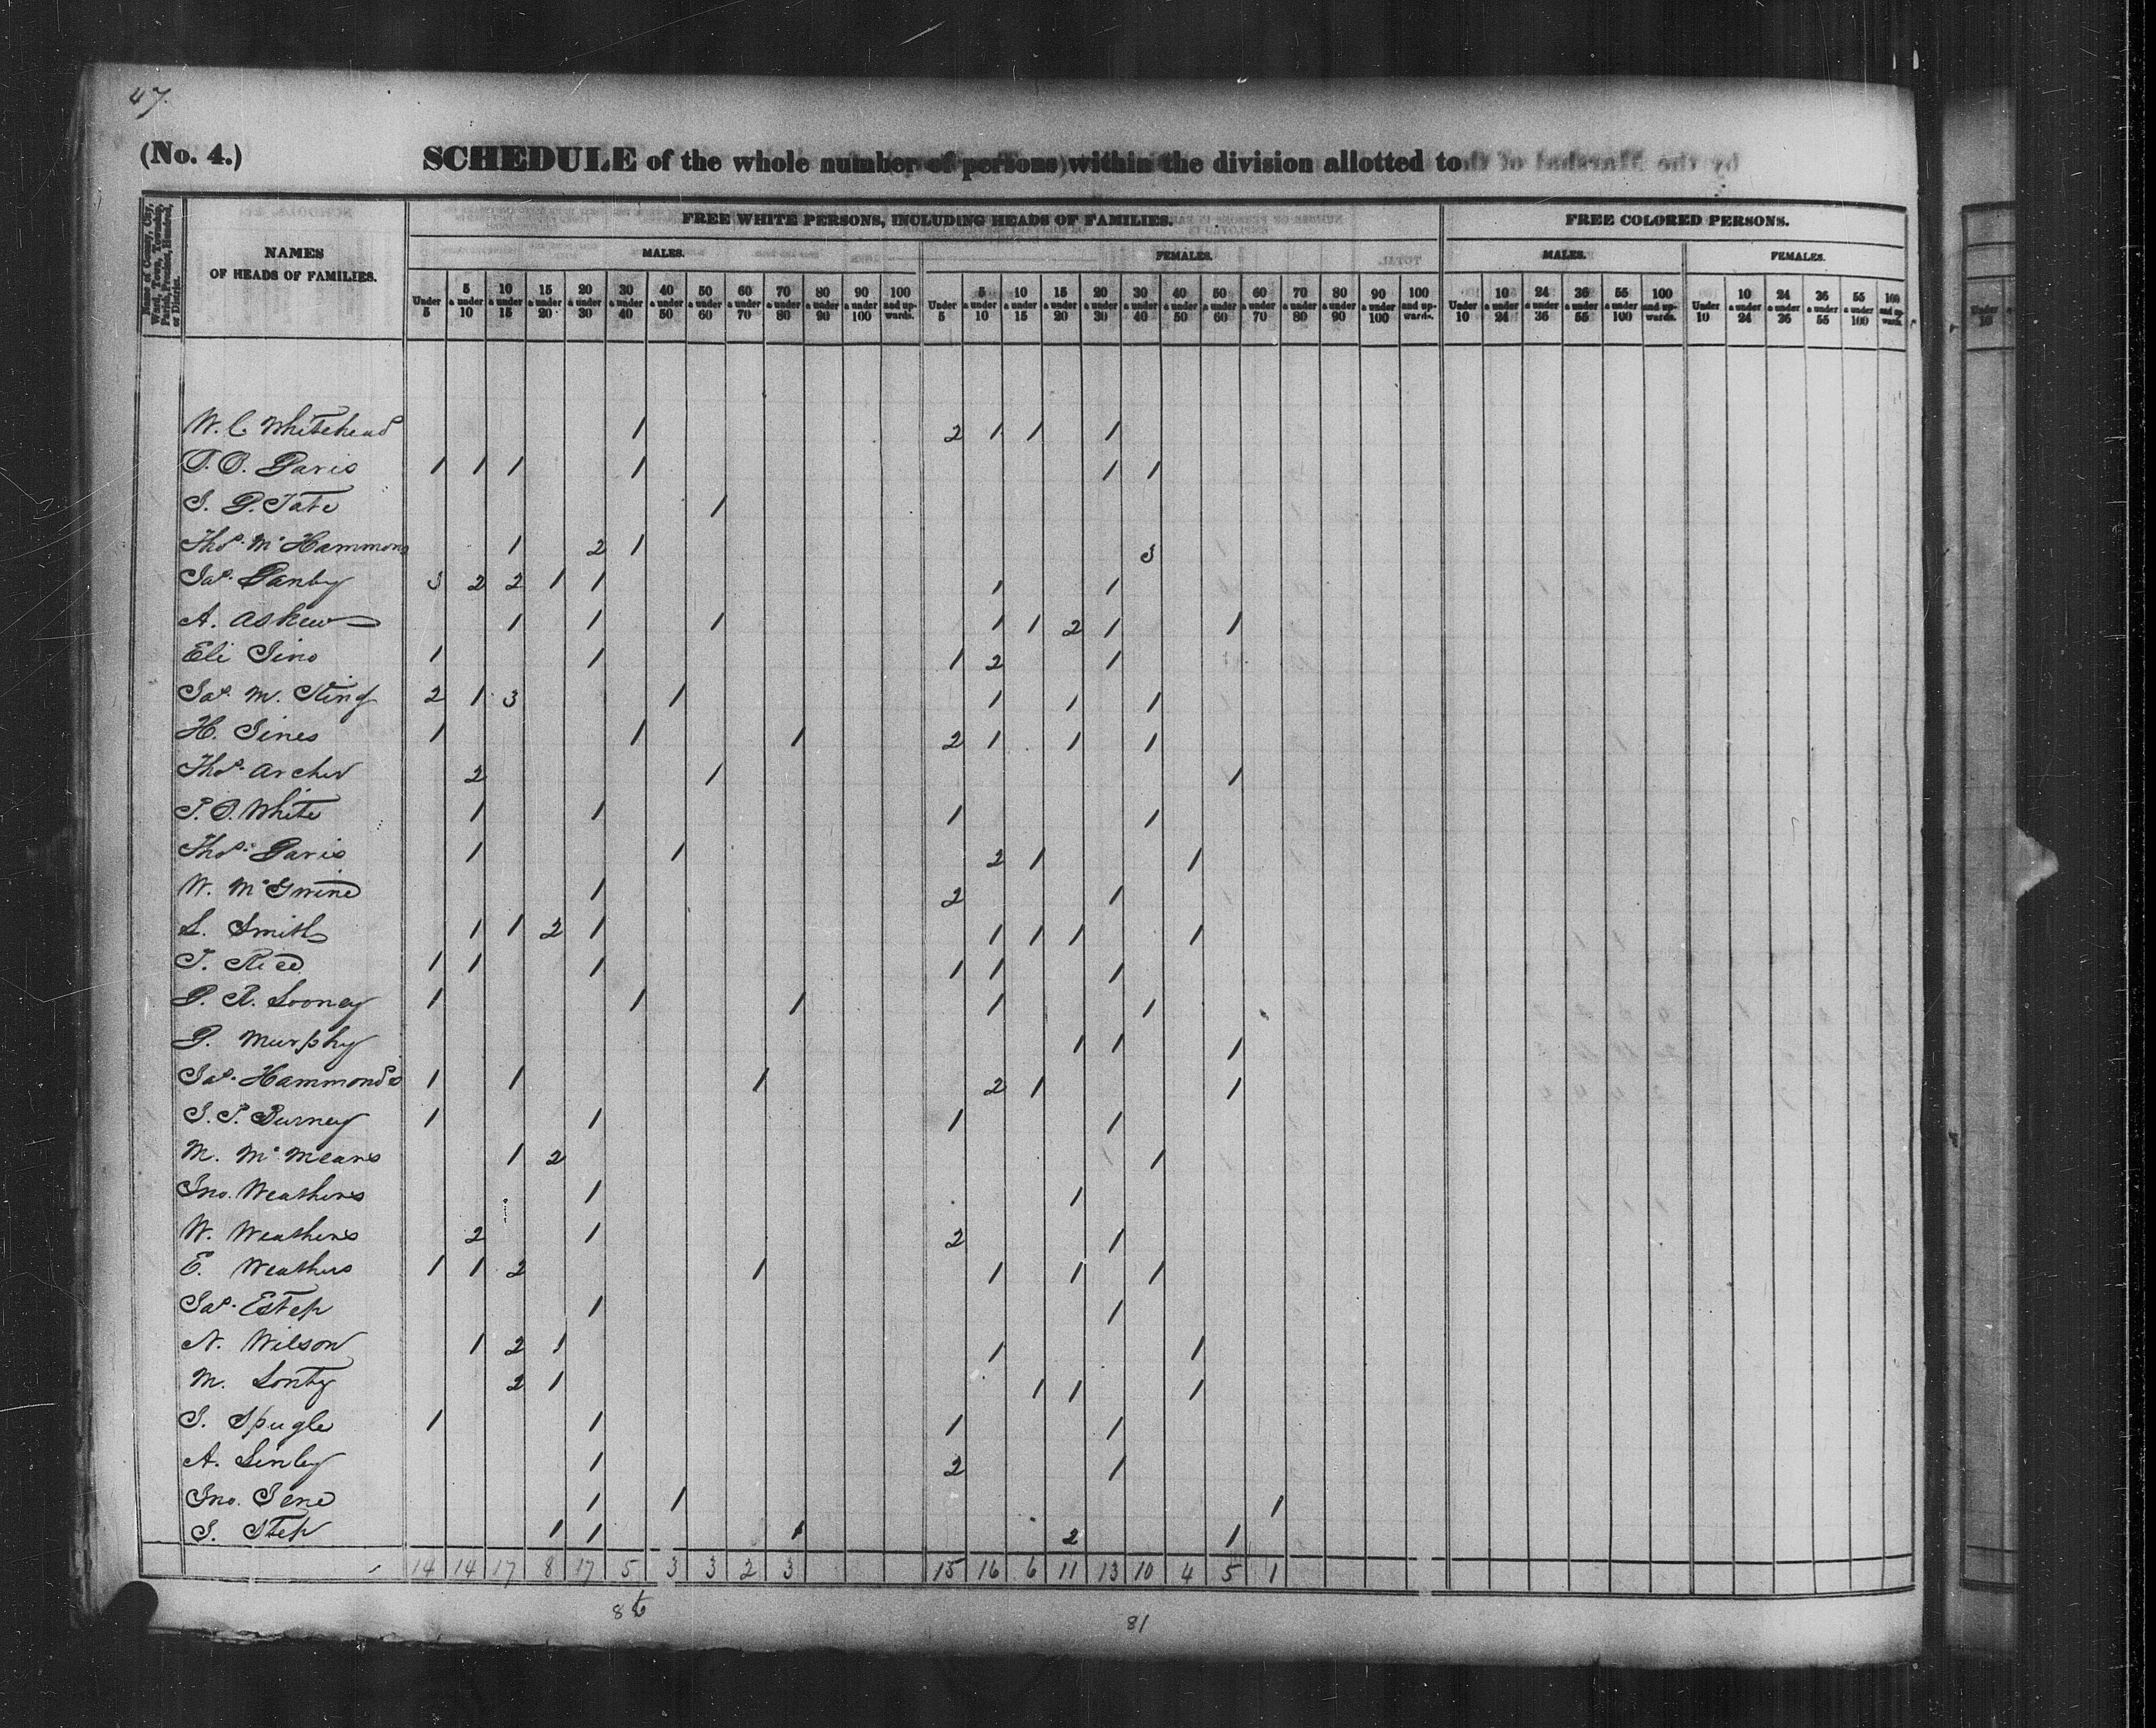 47.
(No. 4.)
SCHEDULE of the whole number of persons within the division allotted to
Name of County, City, Ward, Town, Township, Parish, Precinct, Hundred, or District.
NAMES OF HEADS OF FAMILIES.
FREE WHITE PERSONS, INCLUDING HEADS OF FAMILIES.
FREE COLORED PERSONS.
MALES. FEMALES. MALES. FEMALES.
Under 5 5 & under 10 10 & under 15 15 & under 20 20 & under 30 30 & under 40 40 & under 50 50 & under 60 60 & under 70 70 & under 80 80 & under 90 90 & under 100 100 and upwards. Under 5 5 & under 10 10 & under 15 15 & under 20 20 & under 30 30 & under 40 40 & under 50 50 & under 60 60 & under 70 70 & under 80 80 & under 90 90 & under 100 100 and upwards. Under 10 10 & under 24 24 & under 36 36 & under 55 55 & under 100 100 and upwards. Under 10 10 & under 24 24 & under 36 36 & under 55 55 & under 100 100 and upwards.
W. C. Whitehead 1 2 1 1 1
T. O. Davis 1 1 1 1 1 1
S. D. Tate 1
Thos. Mc Hammons 1 2 1 3
Jas. Danby 3 2 2 1 1 1 1
A. Askew 1 1 1 1 1 2 1 1
Eli 1 1 1 2 1
Jas. M. King 2 1 3 1 1 1 1
H. Sines 1 1 1 2 1 1 1
Thos. Archer 2 1 1
P. O. White 1 1 1 1
Thos. Davis 1 1 2 1 1
W. Mc 1 2 1
L. Smith 1 1 2 1 1 1 1 1
T. Rice 1 1 1 1 1 1
D. R. Looney 1 1 1 1 1
D. Murphy 1 1 1
Jas. Hammonds 1 1 1 2 1 1
S. P. Burney 1 1 1 1
M. Mc Means 1 2 1
Jno. Weathers 1 1
W. Weathers 2 1 2 1
E. Weathers 1 1 2 1 1 1 1
Jas. Estep 1 1
N. Wilson 1 2 1 1 1
M. 2 1 1 1 1
S. Spugle 1 1 1 1
A. Linley 1 2 1
Jno. 1 1 1
S. Step 1 1 1 2 1
14 14 17 8 17 5 3 3 2 3 15 16 6 11 13 10 4 5 1
86 81